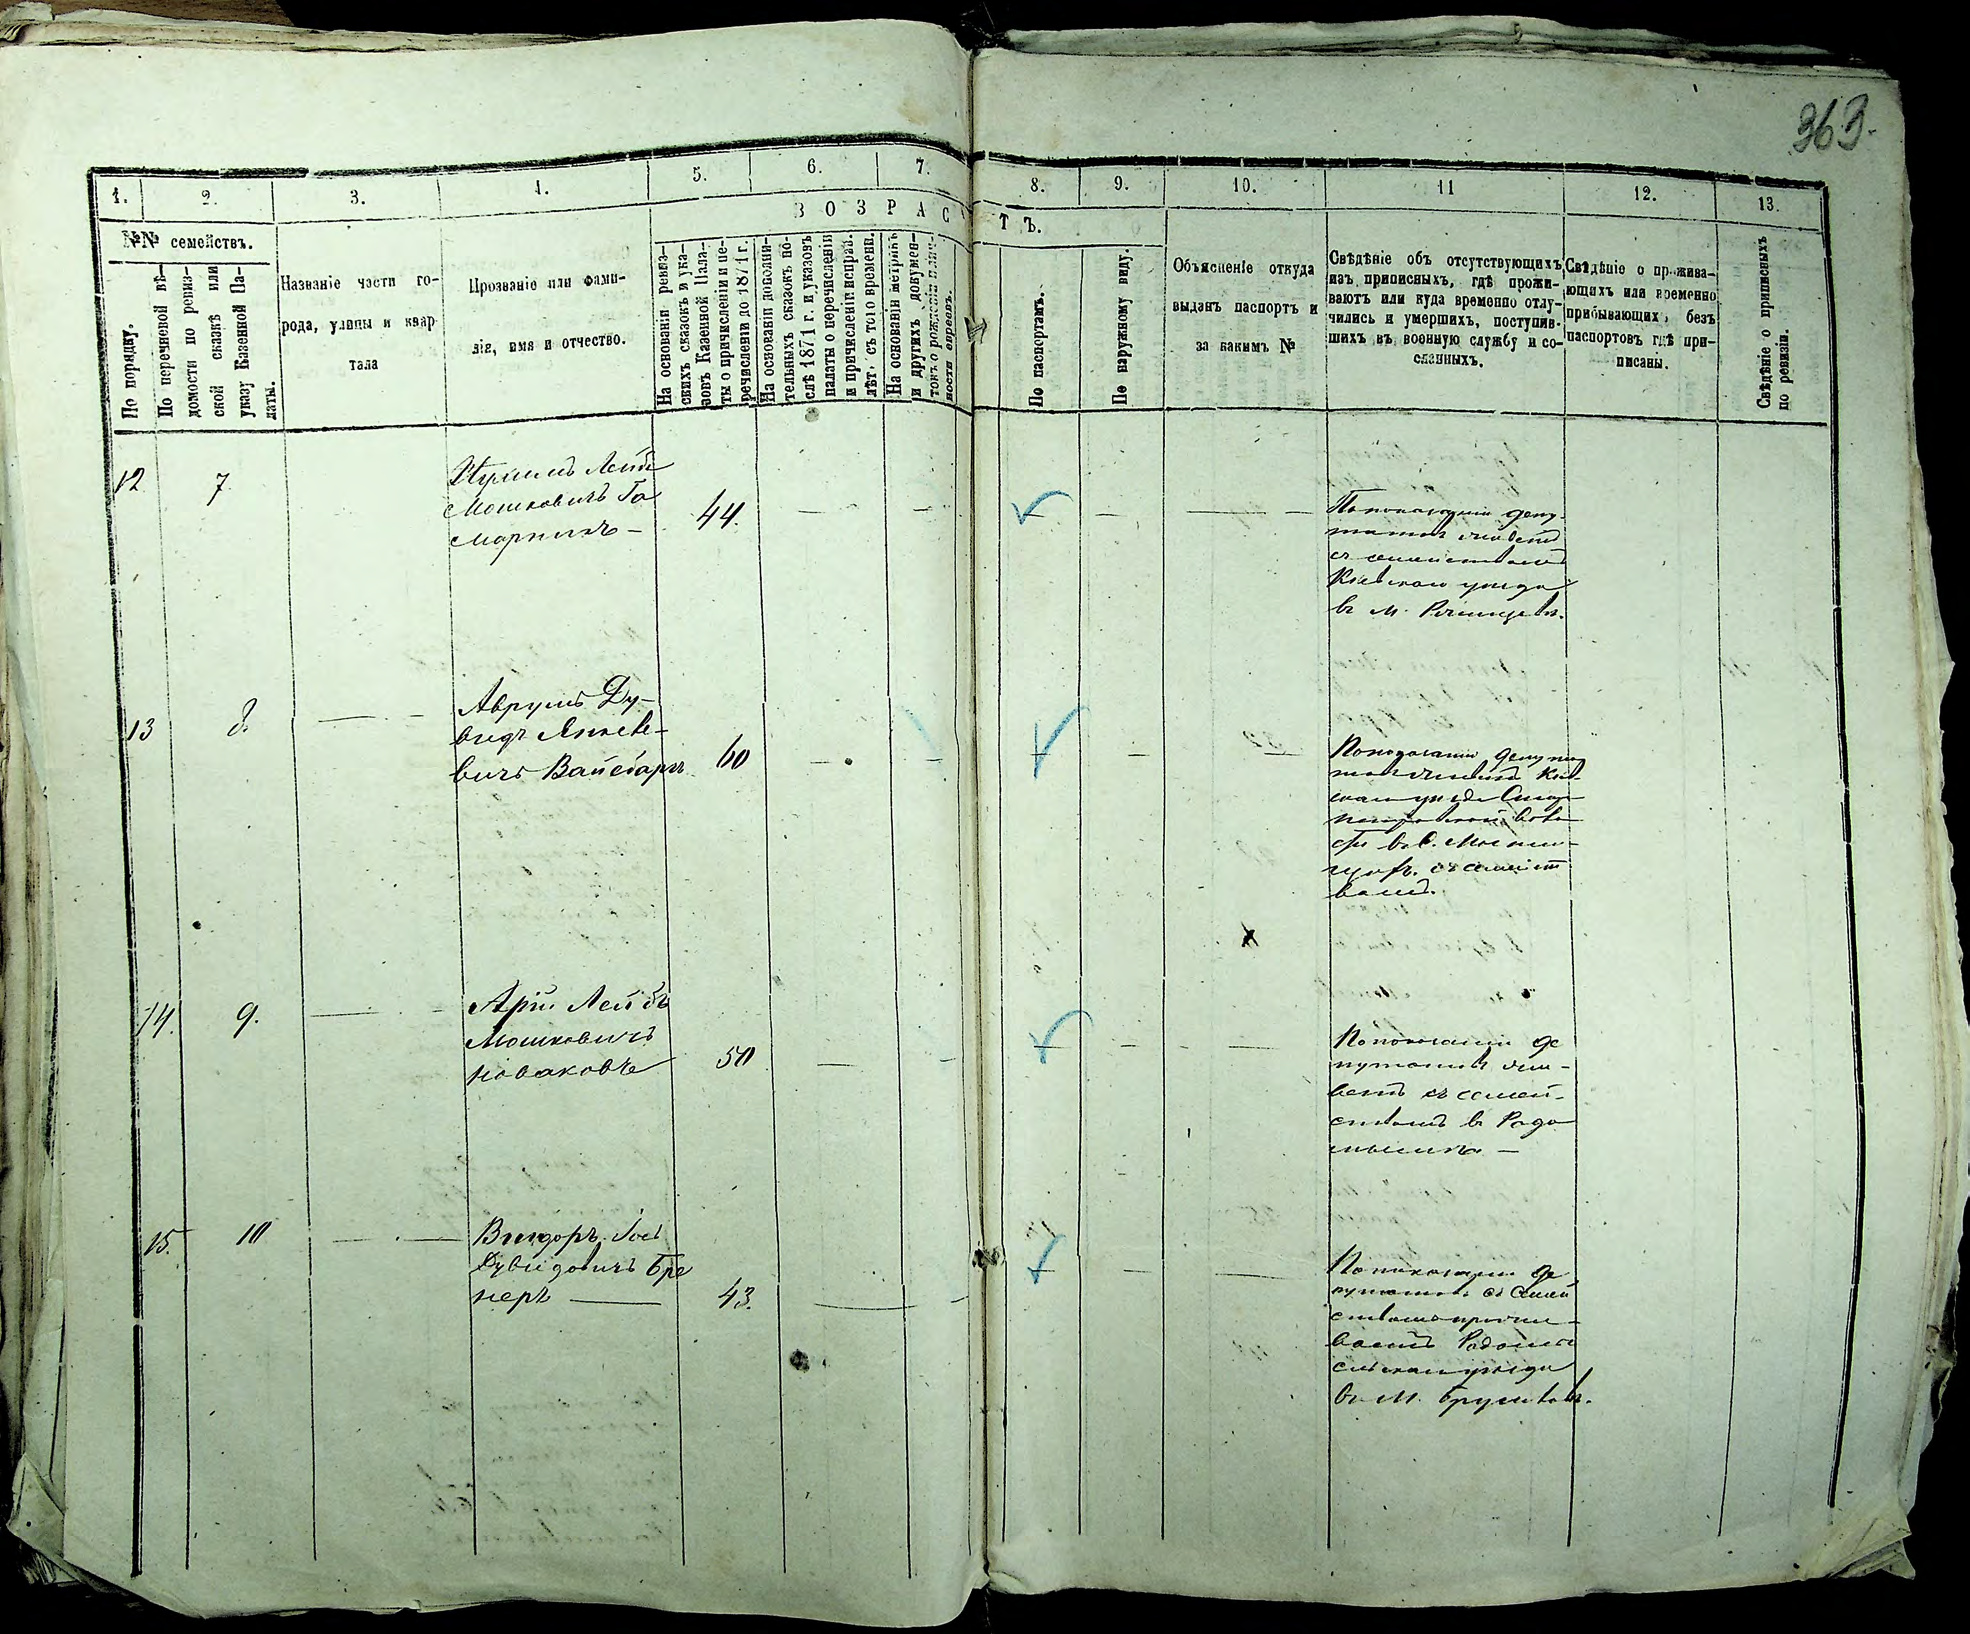 363.
1.
2.
3.
4.
5.
6.
7.
8.
9.
10.
11
12.
13.
ВОЗРАСТЪ.
№№ семействъ.
По порядку.
По перечневой вѣ-
домости по ревиз-
ской сказкѣ или
указу Казенной Па-
латы.
Названіе части го-
рода, улицы и квар
тала
Прозваніе или фами-
лія, имя и отчество.
На основаніи ревиз-
скихъ сказокъ и ука-
зовъ Казенной Пала-
ты о причисленіи и пе-
речисленіи до 1871 г.
На основаніи дополни-
тельныхъ сказокъ по-
слѣ 1871 г. и указовъ
палаты о перечисленіи
и причисленіи исправ.
лѣт. съ того времени.
На основаніи метрикъ
и другихъ докумен-
товъ о рожденіи
ности евреевъ.
По паспортамъ.
По наружному виду.
Объясненіе откуда
выданъ паспортъ и
за какимъ №
Свѣдѣніе объ отсутствующихъ
изъ приписныхъ, гдѣ прожи-
ваютъ или куда временно отлу-
чились и умершихъ, поступив-
шихъ въ военную службу и со-
сланныхъ.
Свѣдѣніе о прожива-
ющихъ или временно
прибывающихъ, безъ
паспортовъ гдѣ при-
писаны.
Свѣдѣніе о приписныхъ
по ревизіи.
12
7
Лейбъ
Мошковичъ Го
44.
По показанію депу-
татовъ живетъ
съ семействомъ
Кіевскаго уѣзда
въ м. Ржищевѣ.
13
8.
Аврумъ Ду-
видъ Янкеле-
вичъ Вайсбаръ
60
По показанію депута
товъ живетъ Кіев-
скаго уѣзда Старо
петровской воло
сти въ с.
съ семейст
вомъ.
14.
9.
Арій Лейбъ
Мошковичъ
Новаковъ
50
По показанію де
путатовъ жи-
ветъ съ семей-
ствомъ въ Радо
мыслѣ —
15.
10
Вигдоръ Іось
Дувидовичъ Бре
неръ
43.
По показанію де
путатовъ съ семей
ствомъ прожи-
ваетъ Радомы
сльскаго уѣзда
въ м. Брусиловѣ.